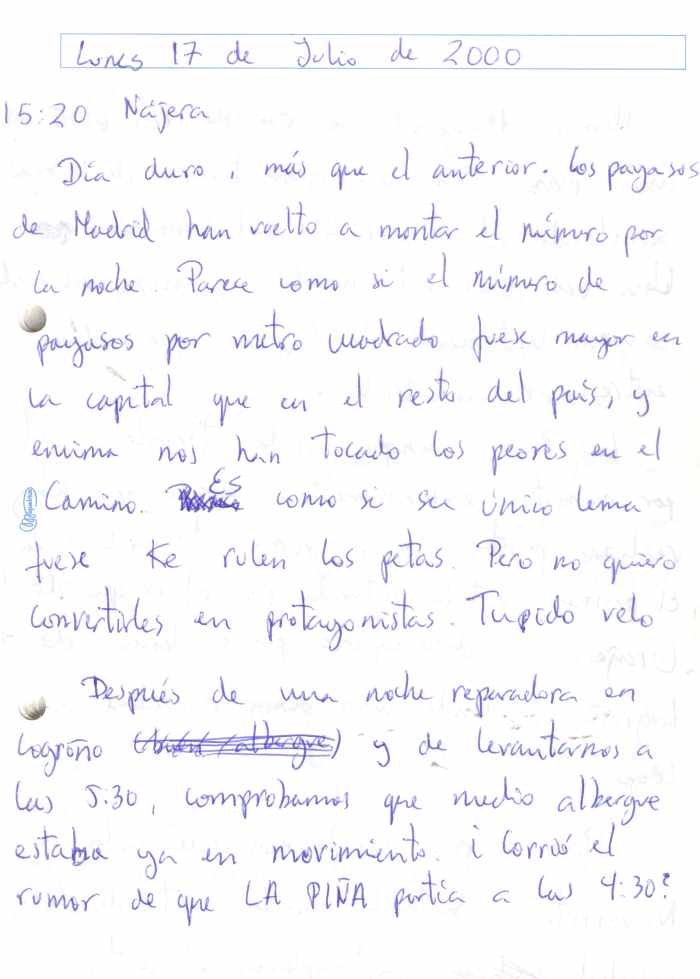 Lunes 17 de Julio de 2000
15:20 Nájera
Día duro, más que el anterior. Los payasos
de Madrid han vuelto a montar el número por
la noche. Parece como si el número de
payasos por metro cuadrado fuese mayor en
la capital que en el resto del país, y
encima nos han tocado los peores en el
Camino. Es como si su único lema
fuese Ke rulen los petas. Pero no quiero
convertirles en protagonistas. Tupido velo
Después de una noche reparadora en
Logroño (albergue) y de levantarnos a
las 5:30, comprobamos que medio albergue
estaba ya en movimiento. ¿Corrió el
rumor de que LA PIÑA partía a las 4:30?